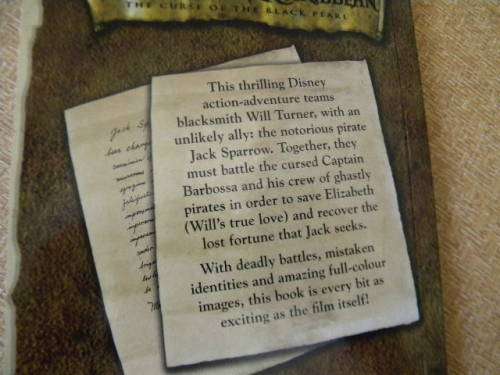 THE CURSE OF THE BLACK PEARL
This thrilling Disney
action-adventure teams
blacksmith Will Turner, with an
unlikely ally: the notorious pirate
Jack Sparrow. Together, they
must battle the cursed Captain
Barbossa and his crew of ghastly
pirates in order to save Elizabeth
(Will's true love) and recover the
lost fortune that Jack seeks.
With deadly battles, mistaken
identities and amazing full-colour
images, this book is every bit as
exciting as the film itself!
Jack